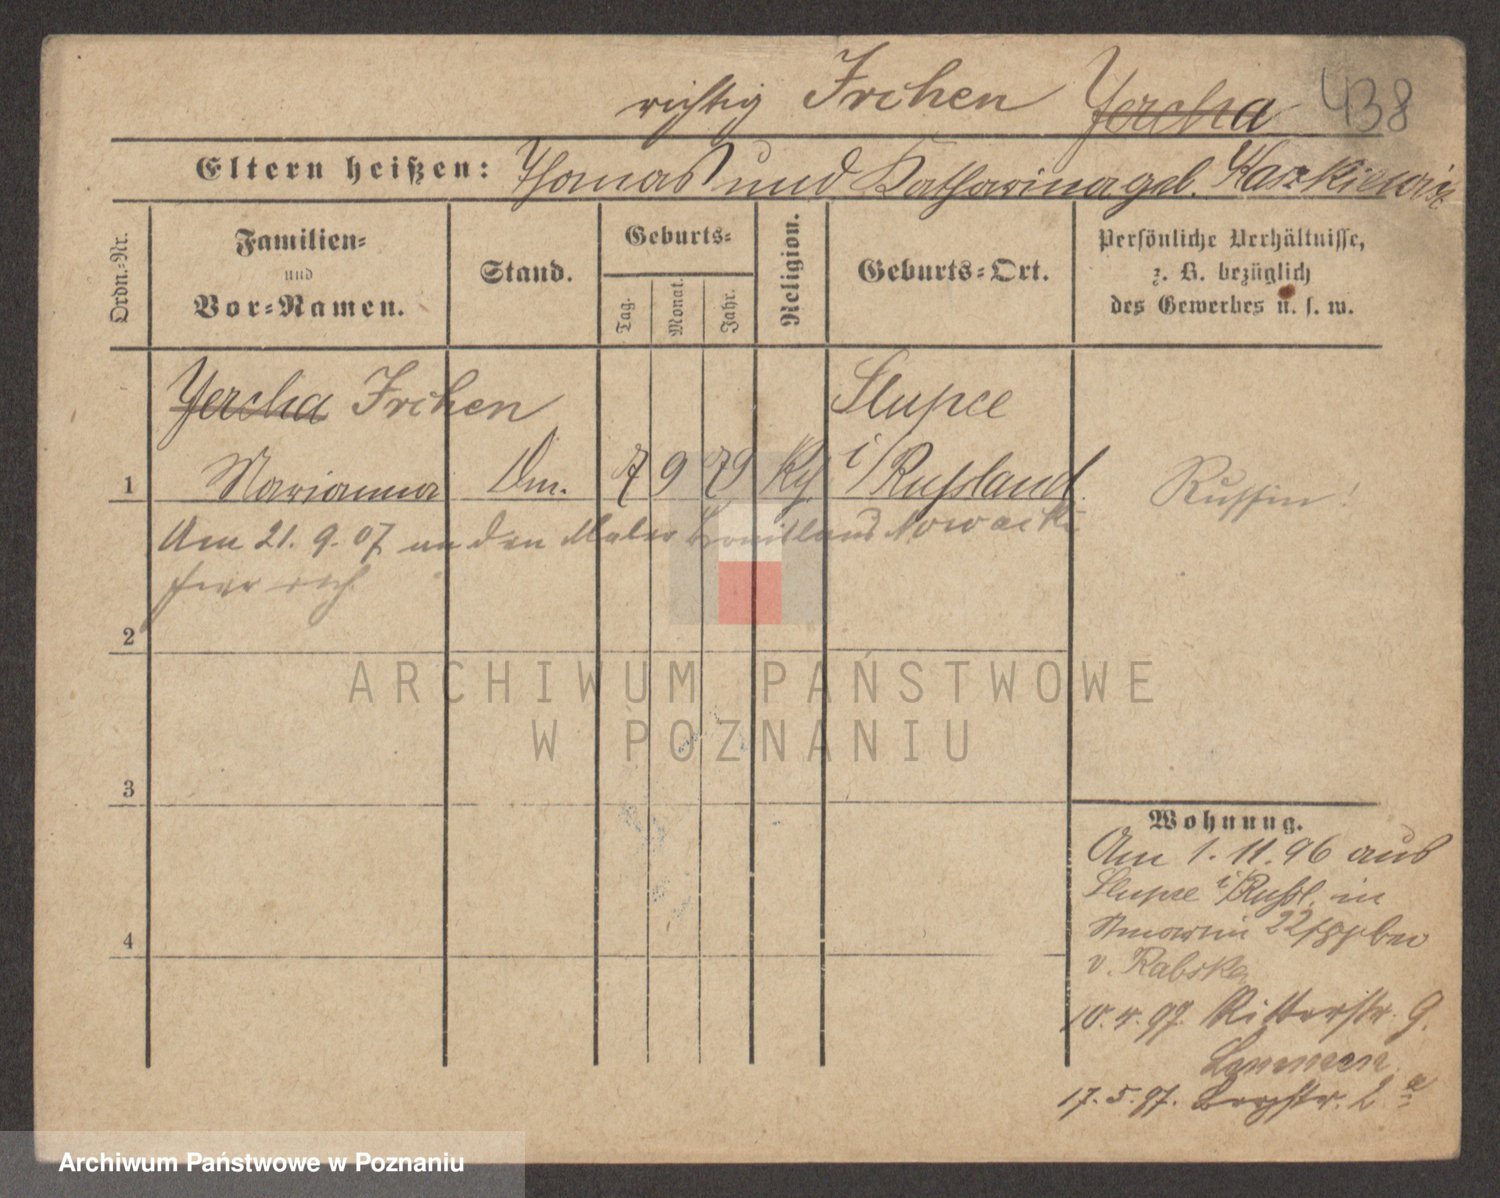 richtig Irchen Yercha 438
Eltern heißen: Thomas und Katharina geb. Kaszkiewicz
Ordn.-Nr.
Familien-
und
Vor-Namen.
Stand.
Geburts-
Tag.
Monat.
Jahr.
Religion.
Geburts-Ort.
Persönliche Verhältnisse,
z. B. bezüglich
des Gewerbes u. s. w.
Yercha Irchen
Slupce
1 Marianna Dm. 7 9 79 Kg i/Russland.
Russin!
Am 21. 9. 07 an den Maler Nowacki
2
3
4
Wohnung.
Am 1. 11. 96 aus
Slupce i/Russl. in
22/ bei
v. Rabska
10. 4. 97. Ritterstr. 9.
17. 5. 97. Bergstr. 2 a
ARCHIWUM PAŃSTWOWE
W POZNANIU
Archiwum Państwowe w Poznaniu